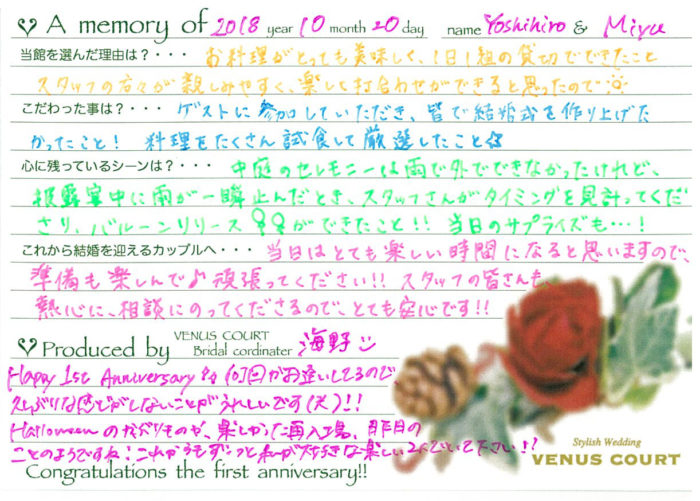 A memory of 2018 year 10 month 20 day name Yoshihiro & Miyu
当館を選んだ理由は？・・・ お料理がとっても美味しく、1日1組の貸切でできたこと
スタッフの方々が親しみやすく、楽しく打合わせができると思ったので
こだわった事は？・・・ ゲストに参加していただき、皆で結婚式を作り上げた
かったこと！ 料理をたくさん試食して厳選したこと☆
心に残っているシーンは？・・・ 中庭のセレモニーは雨で外でできなかったけれど、
披露宴中に雨が一瞬止んだとき、スタッフさんがタイミングを見計ってくだ
さり、バルーンリリースができたこと!! 当日のサプライズも…！
これから結婚を迎えるカップルへ・・・ 当日はとても楽しい時間になると思いますので、
準備も楽しんで♪頑張ってください!! スタッフの皆さんも、
熱心に、相談にのってくださるので、とても安心です!!
Produced by VENUS COURT Bridal cordinater 海野
Happy 1st Anniversary 何回かお逢いしてるので、
久しぶりな感じがしないことがうれしいです(笑)!!
Halloweenのかざりものや、楽しかった再入場、昨日の
ことのようですね！これからもずーっと私が大好きな楽しい2人でいて下さい!!
Congratulations the first anniversary!!
Stylish Wedding
VENUS COURT